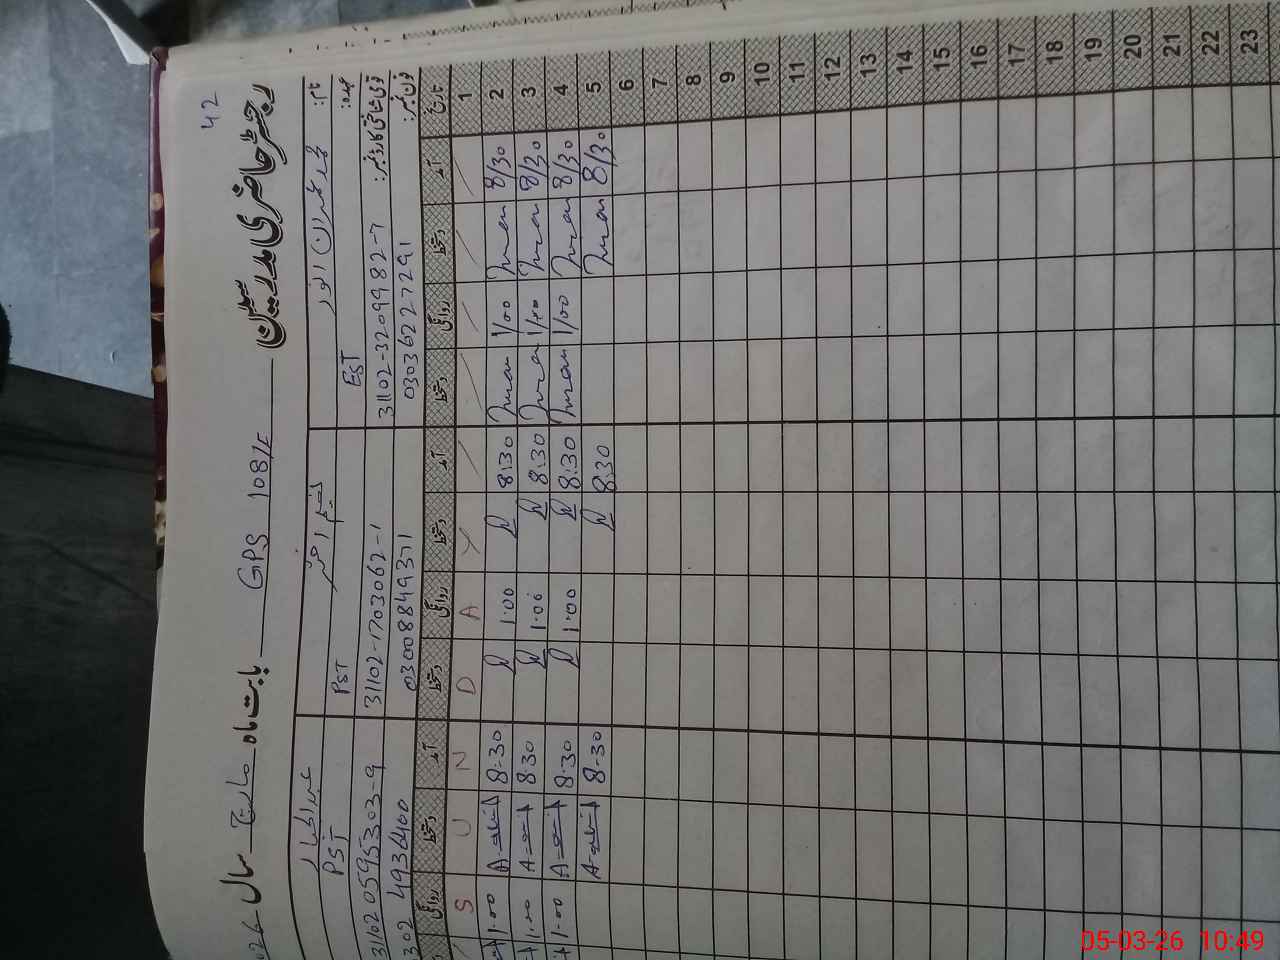 42
رجسٹر حاضری مدرسین GPS 108/F بابت ماہ مارچ سال
نام: محمد عمران انور
عہدہ: EST
قومی شناختی کارڈ نمبر: 31102-3209982-7
فون نمبر: 03036227291
نسیم اختر
PST
31102-1703062-1
03008849371
عبدالجبار
PST
31102 0595303-9
302 4936400
تاریخ آمد دستخط روانگی دستخط آمد دستخط روانگی دستخط آمد دستخط روانگی
1 Y A D N U S
2 8/30 Imran 1/00 Imran 8:30 1:00 8:30 1:00
3 8/30 Imran 1/00 Imran 8:30 1:00 8:30 1:00
4 8/30 Imran 1/00 Imran 8:30 1:00 8:30 1:00
5 8/30 Imran 8:30 8:30
6
7
8
9
10
11
12
13
14
15
16
17
18
19
20
21
22
23
05-03-26 10:49